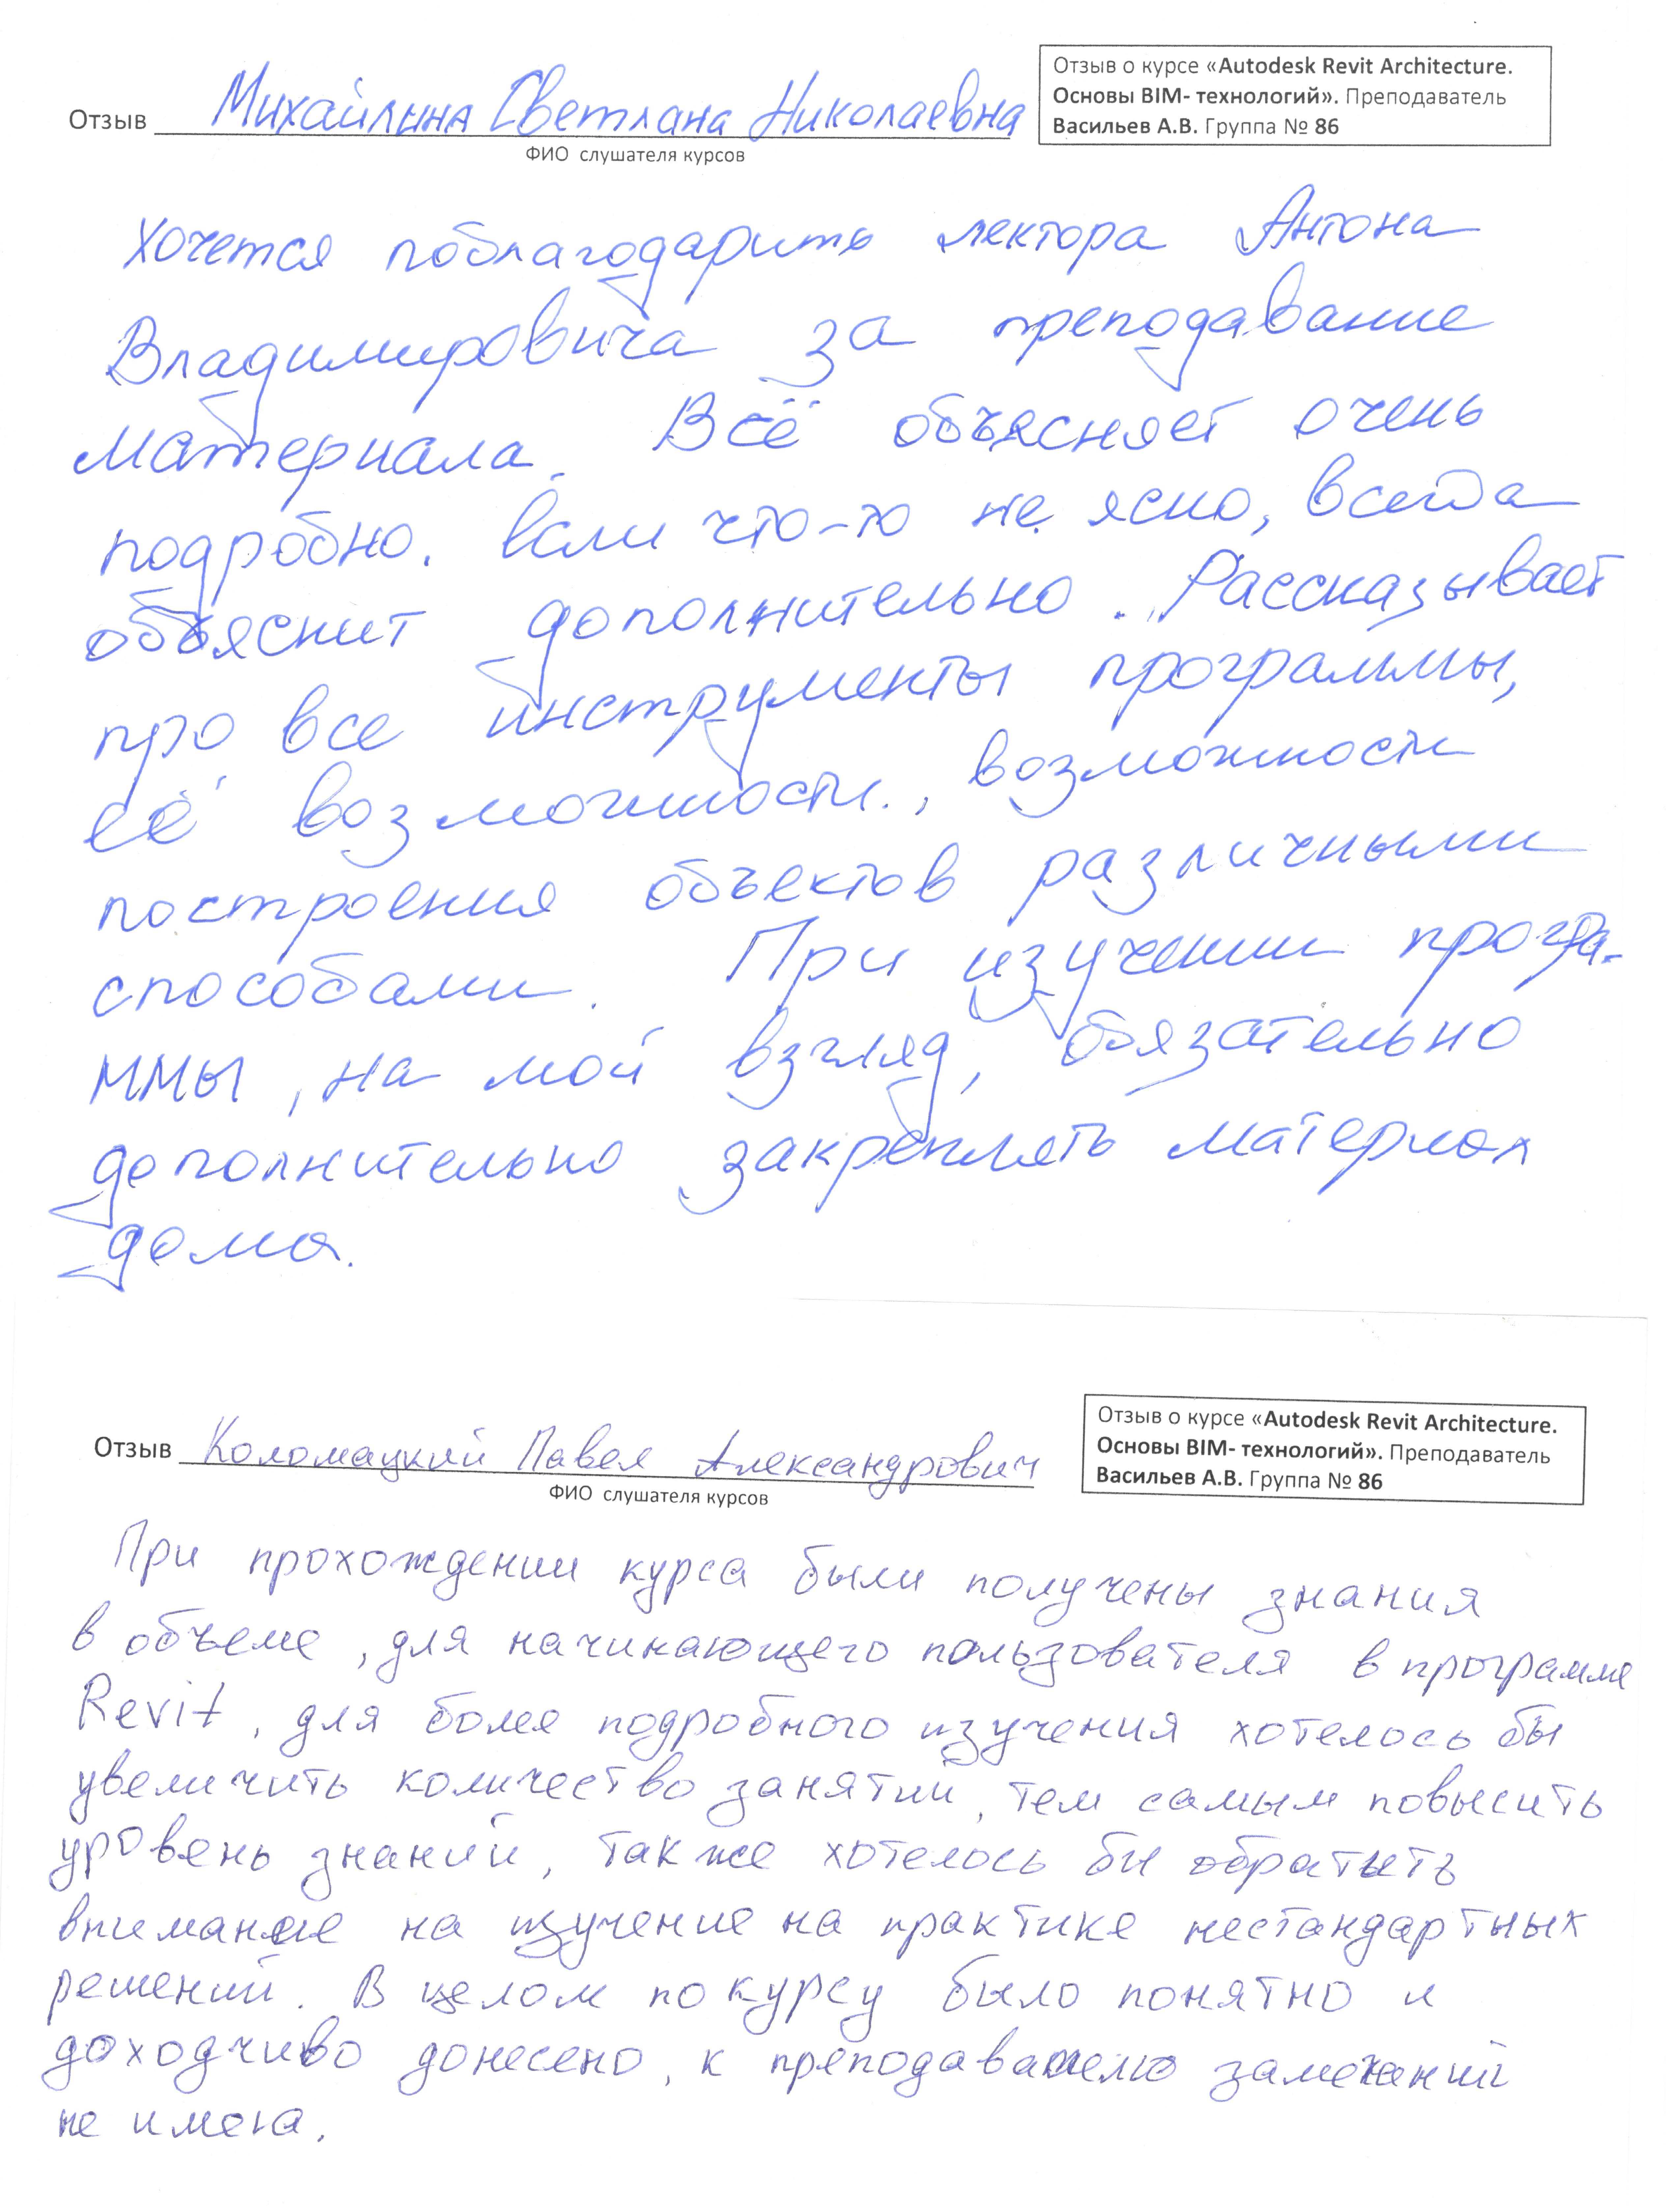 Отзыв Михайлина Светлана Николаевна
ФИО слушателя курсов
Отзыв о курсе «Autodesk Revit Architecture.
Основы BIM- технологий». Преподаватель
Васильев А.В. Группа № 86
Хочется поблагодарить лектора Антона
Владимировича за преподавание
материала. Всё объясняет очень
подробно. Если что-то не ясно, всегда
объяснит дополнительно. Рассказывает
про все инструменты программы,
её возможности, возможности
построения объектов различными
способами. При изучении програ-
ммы, на мой взгляд, обязательно
дополнительно закреплять материал
дома.
Отзыв Коломацкий Павел Александрович
ФИО слушателя курсов
Отзыв о курсе «Autodesk Revit Architecture.
Основы BIM- технологий». Преподаватель
Васильев А.В. Группа № 86
При прохождении курса были получены знания
в объеме, для начинающего пользователя в программе
Revit, для более подробного изучения хотелось бы
увеличить количество занятий, тем самым повысить
уровень знаний, также хотелось бы обратить
внимание на изучение на практике нестандартных
решений. В целом по курсу было понятно и
доходчиво донесено, к преподавателю замечаний
не имею.